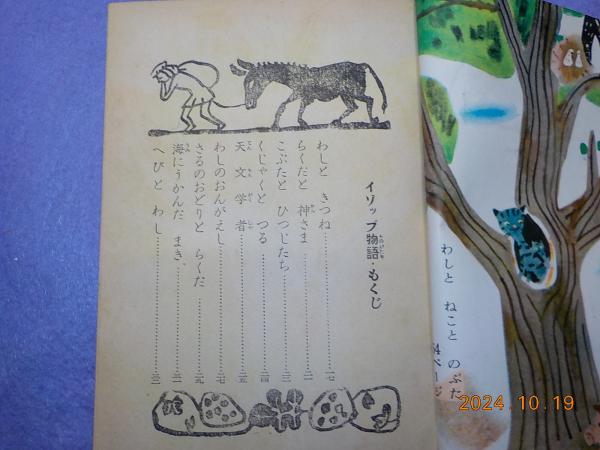 イソップ物語・もくじ
わしと きつね
らくだと 神さま
こぶたと ひつじたち
くじゃくと つる
天文学者
わしのおんがえし
さるのおどりと らくだ
海にうかんだ まき
へびと わし
わしと ねこと のぶた
ページ
2024.10.19